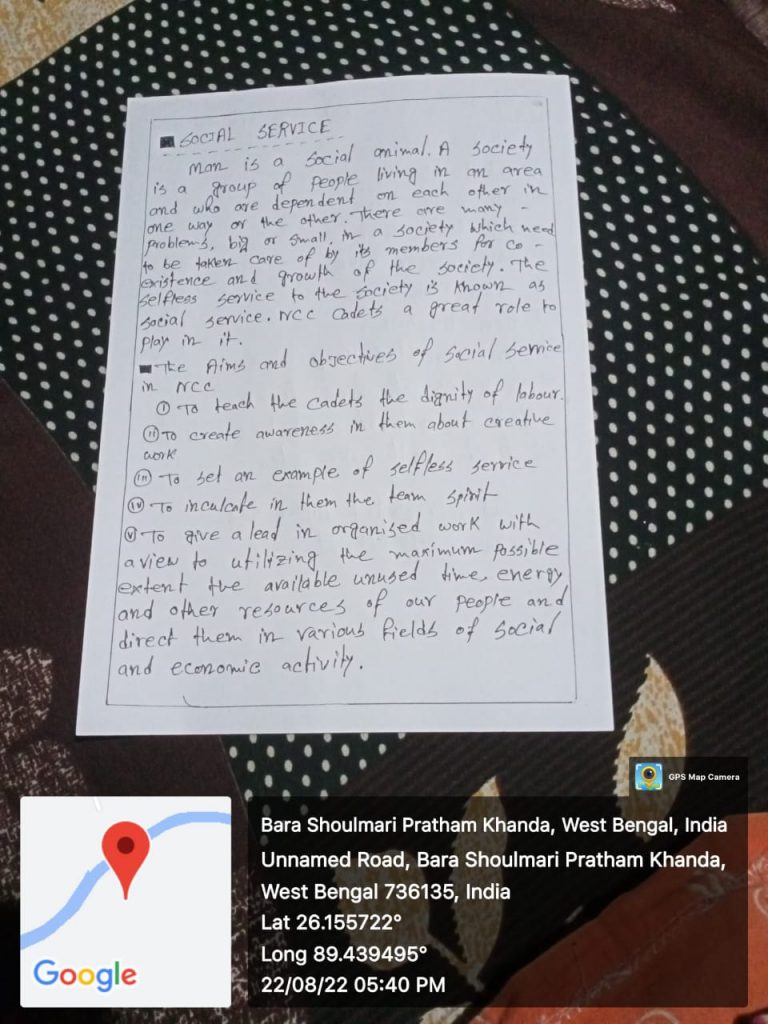 SOCIAL SERVICE
Man is a social animal. A society
is a group of people living in an area
and who are dependent on each other in
one way or the other. There are many -
problems, big or small, in a society which need
to be taken care of by its members for co -
existence and growth of the society. The
selfless service to the society is known as
social service. NCC Cadets a great role to
play in it.
The Aims and objectives of social service
in NCC
(i) To teach the cadets the dignity of labour.
(ii) To create awareness in them about creative
work
(iii) To set an example of selfless service
(iv) To inculcate in them the team spirit
(v) To give a lead in organised work with
a view to utilizing the maximum possible
extent the available unused time, energy
and other resources of our people and
direct them in various fields of social
and economic activity.
GPS Map Camera
Bara Shoulmari Pratham Khanda, West Bengal, India
Unnamed Road, Bara Shoulmari Pratham Khanda,
West Bengal 736135, India
Lat 26.155722°
Long 89.439495°
22/08/22 05:40 PM
Google